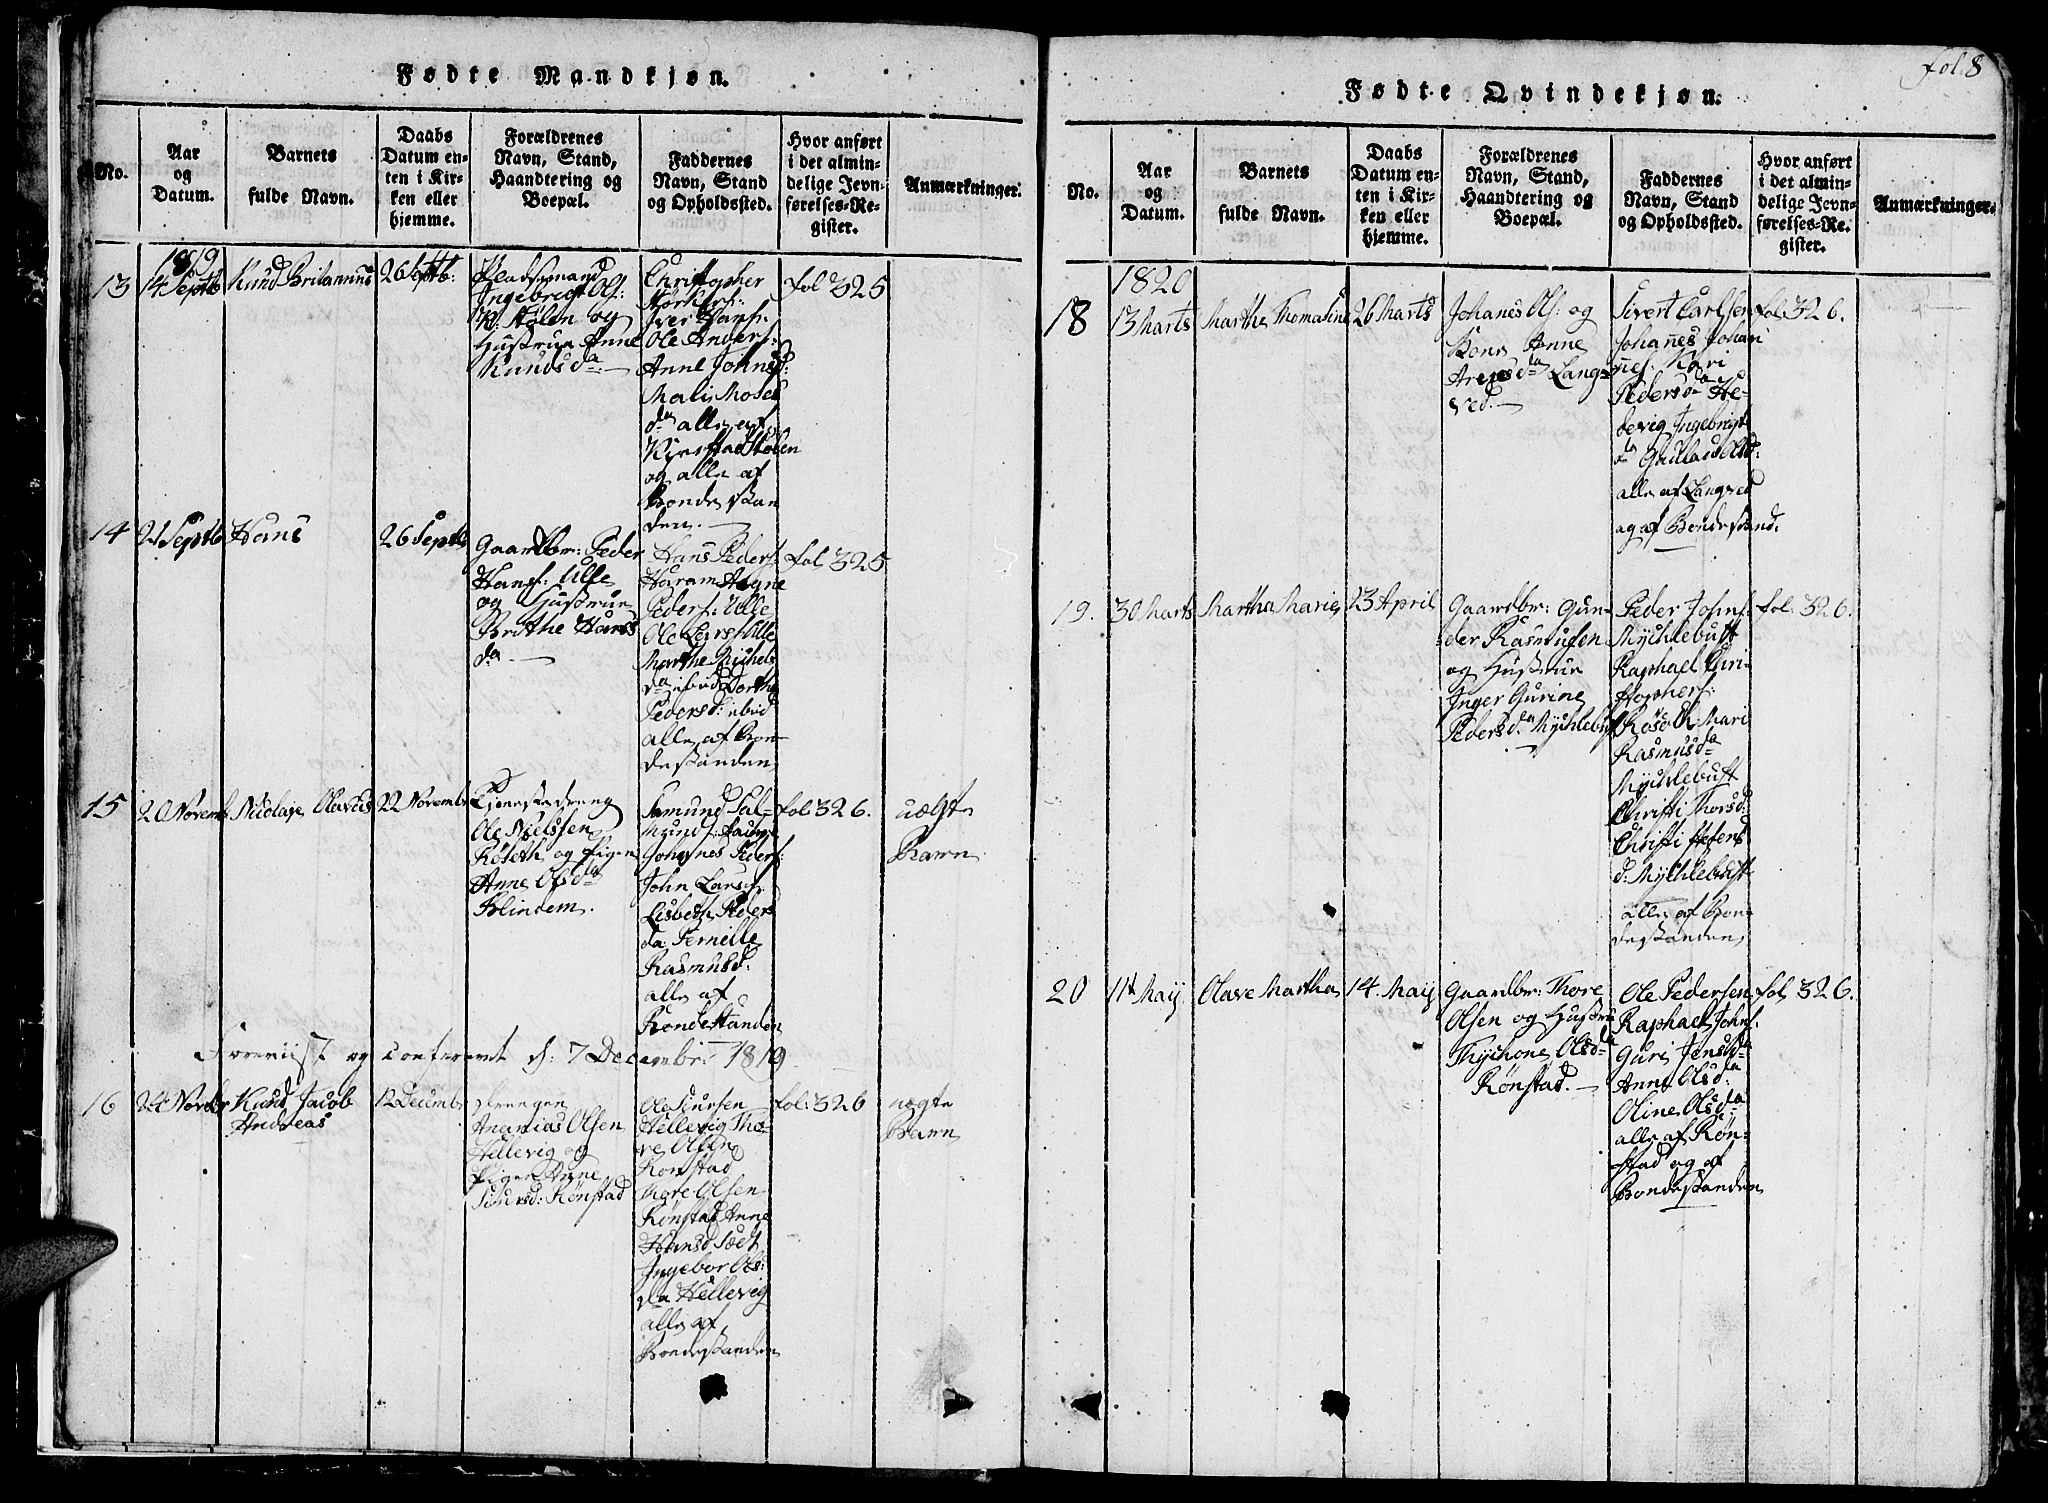 Fødte Mandkjøn.
No.
Aar
og
Datum.
Barnets
fulde Navn.
Daabs
Datum en-
ten i Kir-
ken eller
hjemme.
Forældrenes
Navn, Stand,
Haandtering og
Boepæl.
Faddernes
Navn, Stand
og Opholdssted.
Hvor anført
i det almin-
delige Jevn-
førelses-Re-
gister.
Anmærkninger.
1819
13
14 Septb
Knud Britannus
26 Septb:
Pladsemand
Ingebrigt Ols:
K: Stølen og
Hustrue Anne
Knudsda:
Christopher
Iver Hans:
Ole Anders:
Anne Johnsd:
Mali Moses
da alle af
Kirstadstølen
og alle af
Bonde stan
den.
fol 325
14
21 Septb
Hans
26 Septb
Gaardbr: Peder
Hans: Ulle
og Hustrue
Brithe Hans
da
Hans Peders:
Haram Aagne
Peders: Ulle
Ole Lars: Ulle
Marthe Michels
da ibid Dorthe
Pedersd: ibid
alle af Bon-
destanden
fol 325
15
20 Novemb
Nicolaje Olavus
22 Novembr
Tjenestedreng
Ole Nielssen
Røseth og Pigen
Anne Olsda
Blindem.
Samund Sal-
mund:
Johannes Peders:
John Larsen
Lisbeth Peders
da Pernille
Rasmusd:
alle af
Bondestanden
fol: 326.
uægte
Barn
Foreviist og Confereret d: 7 December 1819
16
24 Novbr
Knud Jacob
Andreas
12 Decembr
Drengen
Ananias Olsen
Hellevig og
Pigen Anne
Siursd: Rønstad
Ole Siursen
Hellevig Tho-
re Olsen
Rønstad
Thore Olsen
Rønstad Anne
Hansd Sæt
Ingebor Ols:
da Hellevig
alle af
Bondestanden
fol: 326
uægte
Barn
fol. 8
Fødte Qvindekjøn.
No.
Aar
og
Datum.
Barnets
fulde Navn.
Daabs
Datum en-
ten i Kir-
ken eller
hjemme.
Forældrenes
Navn, Stand,
Haandtering og
Boepæl.
Faddernes
Navn, Stand
og Opholdssted.
Hvor anført
i det almin-
delige Jevn-
førelses-Re-
gister.
Anmærkninger.
1820
18
13 Marts
Marthe Thomasine
26 Marts
Johanes Ols: og
Kone Anne
Arensda Lang-
ved.
Sivert Carlsen
Johanes Johan
nes: Kari
Pedersda He-
devig Ingebrigt
da Gunild Olsd:
alle af Langved
og af Bondestand.
fol 326.
19.
30 Marts
Martha Marie
23 April
Gaardbr: Gun-
der Rasmusen
og Hustrue
Inger Gurine
Pedersda: Mychlebust
Peder Johns:
Mychlebust
Raphael Chri-
stophers:
Røsok Mari
Rasmusda
Mychlebust
Christi Thorsd:
Christi Stefens
d: Mychlebust
alle af Bon-
destanden
fol: 326.
20
11t May
Olave Martha
14. May
Gaardbr: Thore
Olsen og Hustru
Thychone Olsda
Rønstad.
Ole Pedersen
Raphael Johns:
Guri Jensda
Anne Olsda:
Oline Olsda
alle af Røn-
stad og af
Bondestanden
fol 326.